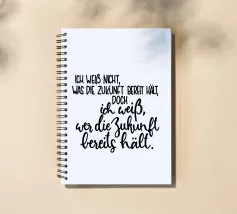 ICH WEIß NICHT,
WAS DIE ZUKUNFT BEREIT HÄLT,
DOCH
ich weiß,
wer die Zukunft
bereits hält.